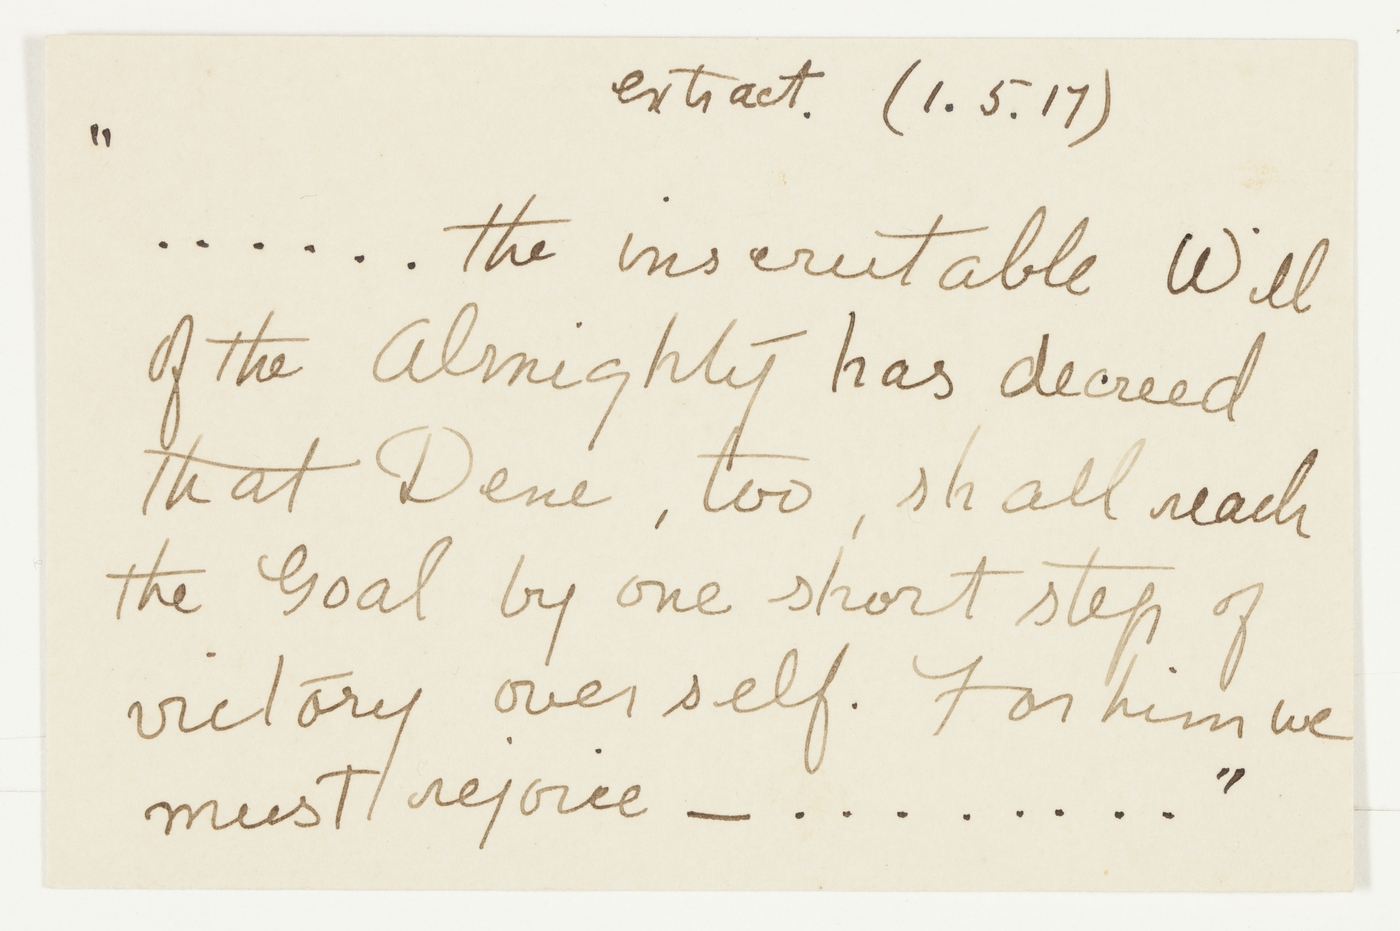 extract. (1.5.17)
"
.......the inscrutable Will
of the Almighty has decreed
that Dene, too, shall reach
the Goal by one short step of
victory over self. For him we
must rejoice — ........"